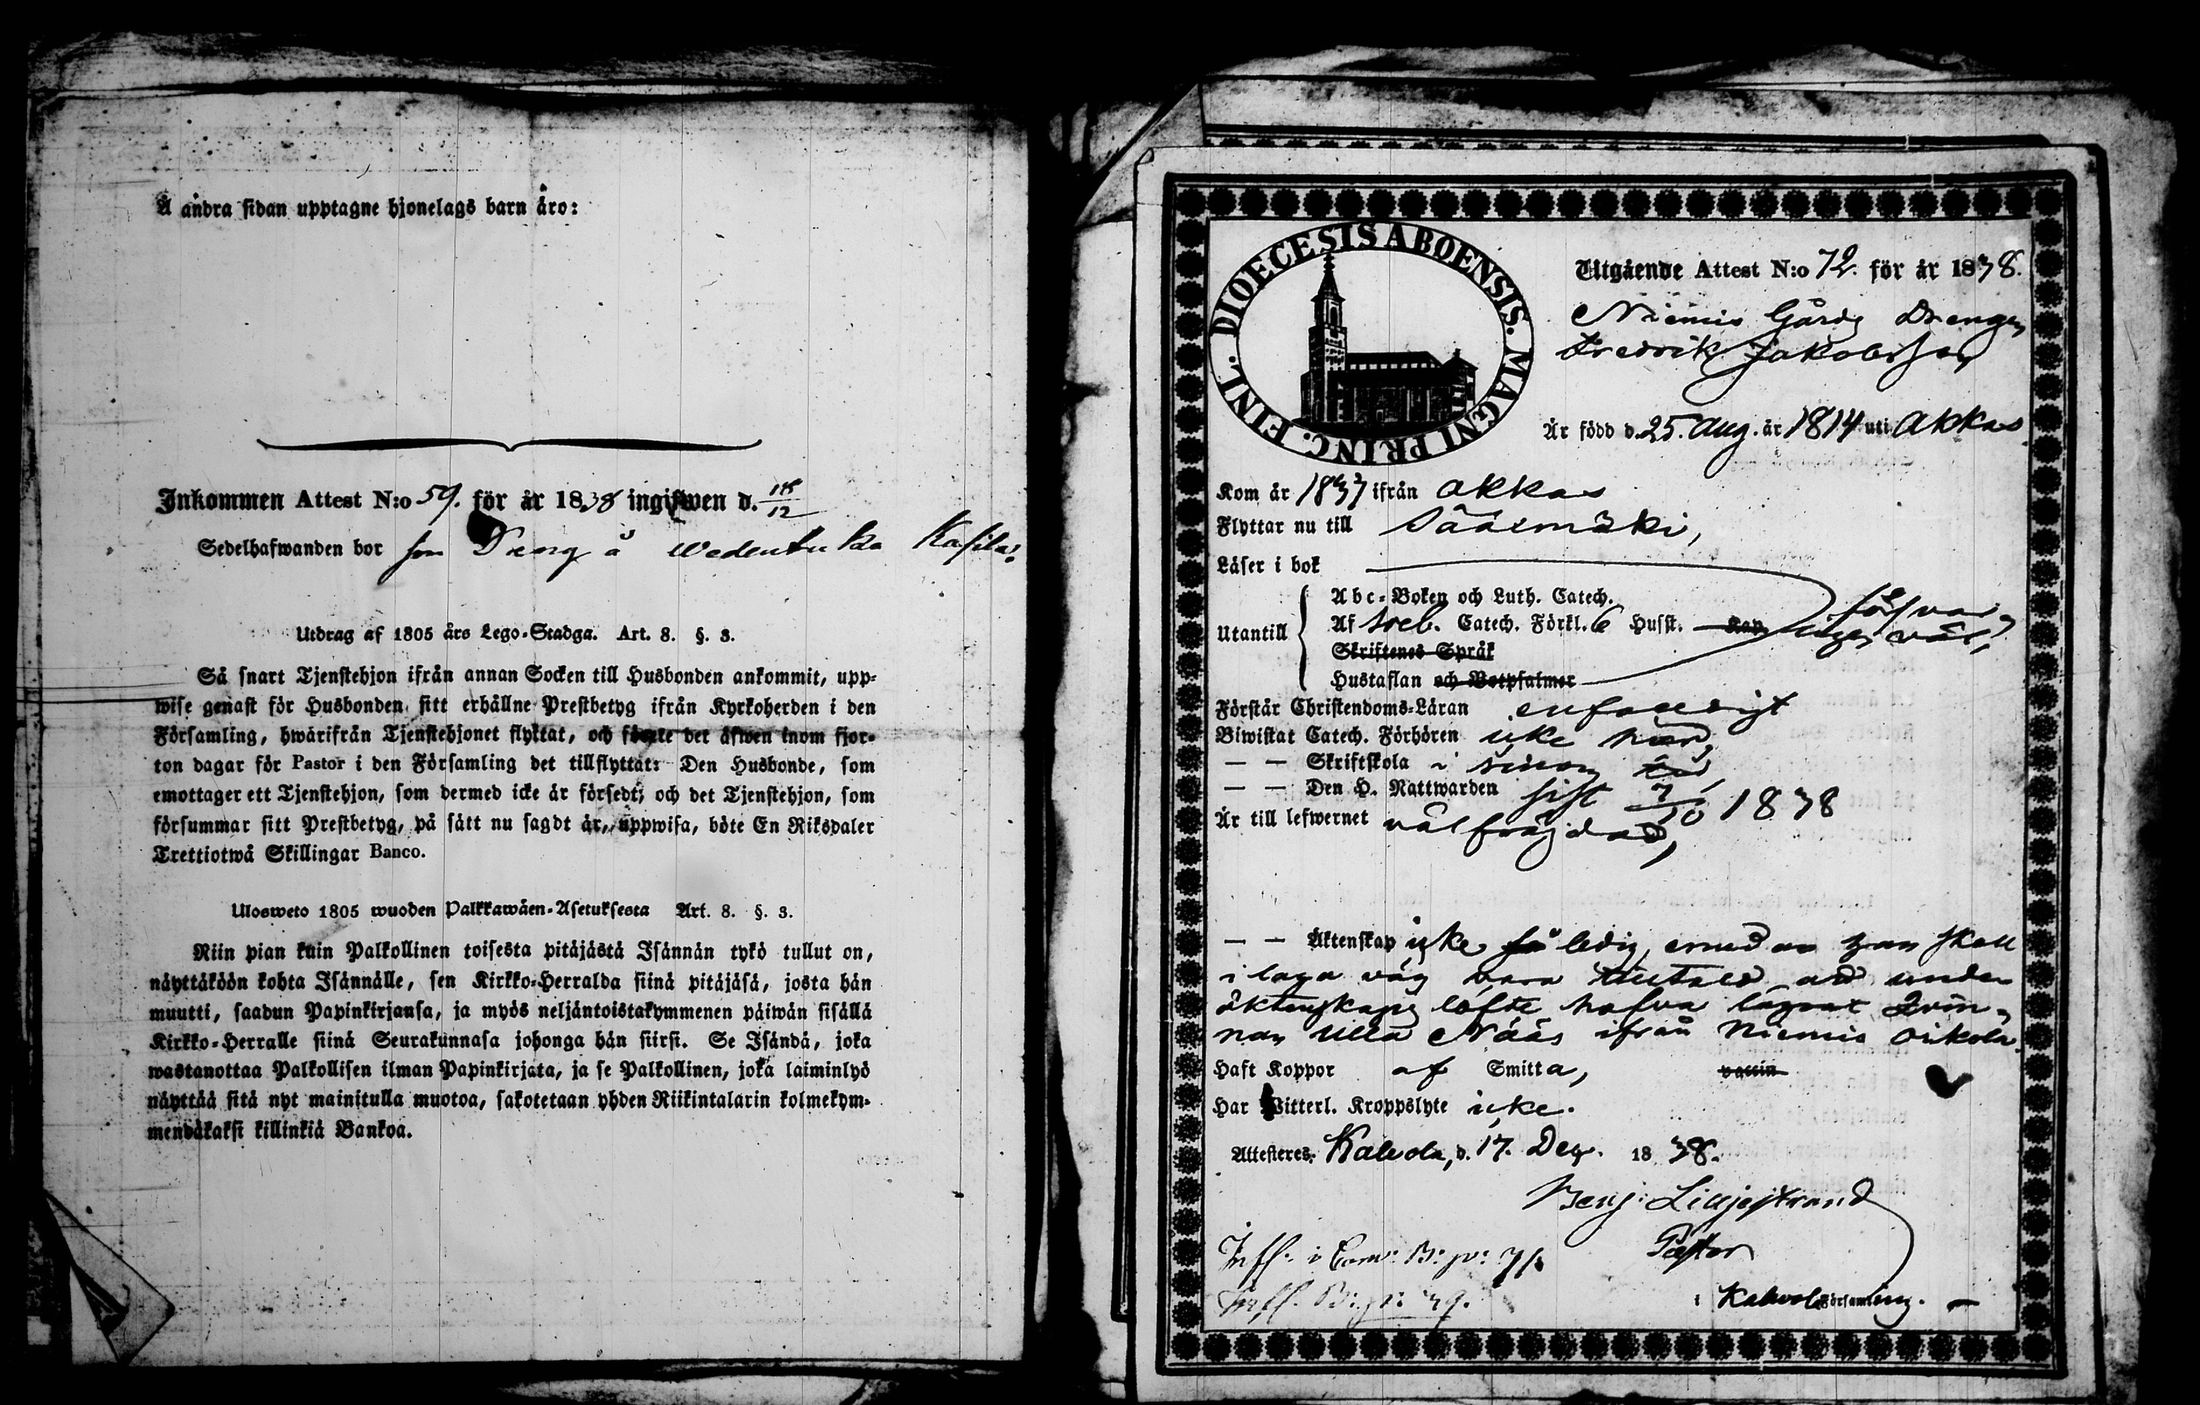 Å andra sidan upptagne hjonelags barn äro:
Inkommen Attest N:o 59. för år 1838 ingifwen d. 18/12
Sedelhafwanden bor som Dreng å Wedentaka Kasila:
Utdrag af 1805 års Lego-Stadga. Art. 8. §. 3.
Så snart Tjenstehjon ifrån annan Socken till Husbonden ankommit, upp-
wise genast för Husbonden sitt erhållne Prestbetyg ifrån Kyrkoherden i den
Församling, hwarifrån Tjenstehjonet flyttat, och förete det äfwen inom fjor-
ton dagar för Pastor i den Församling det tillflyttat: Den Husbonde, som
emottager ett Tjenstehjon, som dermed icke är försedt, och det Tjenstehjon, som
försummar sitt Prestbetyg, på sätt nu sagdt är, uppwisa, böte En Riksdaler
Trettiotwå Skillingar Banco.
Ulosweto 1805 wuoden Palkkawäen-Asetuksesta Art. 8. §. 3.
Niin pian kuin Palkollinen toisesta pitäjästä Isännän tykö tullut on,
näyttäköön kohta Isännälle, sen Kirkko-Herralda siinä pitäjäsä, josta hän
muutti, saadun Papinkirjansa, ja myös neljäntoistakymmenen päiwän sisällä
Kirkko-Herralle siinä Seurakunnasa johonga hän siirsi. Se Isändä, joka
wastanottaa Palkollisen ilman Papinkirjata, ja se Palkollinen, joka laiminlyö
näyttää sitä nyt mainitulla muotoa, sakotetaan yhden Riikintalarin kolmekym-
mendäkaksi killinkiä Bankoa.
DIOECESIS ABOENSIS. MAGNI PRINC. FINL.
Utgående Attest N:o 72. för år 1838.
Niemis Gårds Drengen
Fredrik Jakobsson
Är född d. 25. Aug. år 1814 uti Akkas
Kom år 1837 ifrån Akkas
Flyttar nu till Sääxmäki,
Läser i bok
Utantill
Abc-Boken och Luth. Catech.
Af Sveb. Catech. Förkl. 6 Husst.
Skriftenes Språk
Hustaflan och Botpsalmer
försvar-
ligen väl,
Förstår Christendoms-Läran enfaldigt
Biwistat Catech. Förhören icke här,
— — Skriftskola i sinom tid,
— — Den H. Nattwarden sist 7/10 1838
Är till lefwernet välfräjdad,
— — Äktenskap icke så ledig, emedan han skall
i laga väg vara tilltald att under
äktenskaps löfte hafva lägrat Qvin-
nan Ulla Nääs ifrån Niemis
Haft Koppor af Smitta, vaccin
Har Witterl. Kroppslyte icke.
Attesteres, Kalvola, d. 17. Dec. 1838.
Benj: Liljestrand
Pastor
i Kalvola Församling.
Inff. i Com: B: p:
Inff. B: p: 49.